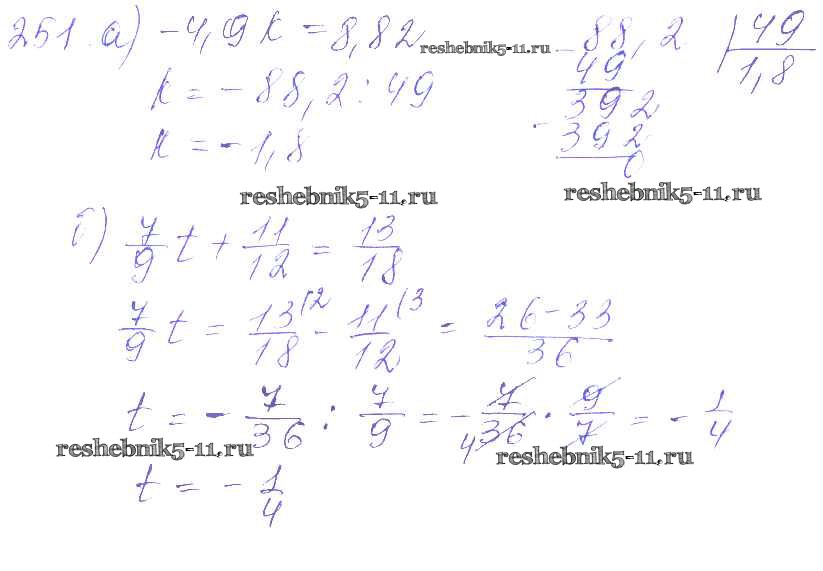 251. а) -4,9к = 8,82 reshebnik5-11.ru
к = -88,2 : 49
к = -1,8
- 88,2 | 49
49 1,8
392
- 392
0
reshebnik5-11.ru reshebnik5-11.ru
б) 7/9 t + 11/12 = 13/18
7/9 t = 13/18 (2 - 11/12 (3 = 26-33/36
t = - 7/36 : 7/9 = - 7/36 4 · 9/7 = - 1/4
reshebnik5-11.ru reshebnik5-11.ru
t = - 1/4